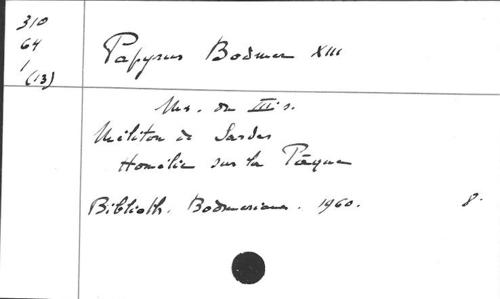 310
64
1
(13)
Papyrus Bodmer XIII
Ms. du IIIe s.
Méliton de Sardes
Homélie sur la Pâque
Biblioth. Bodmeriana. 1960. 8.